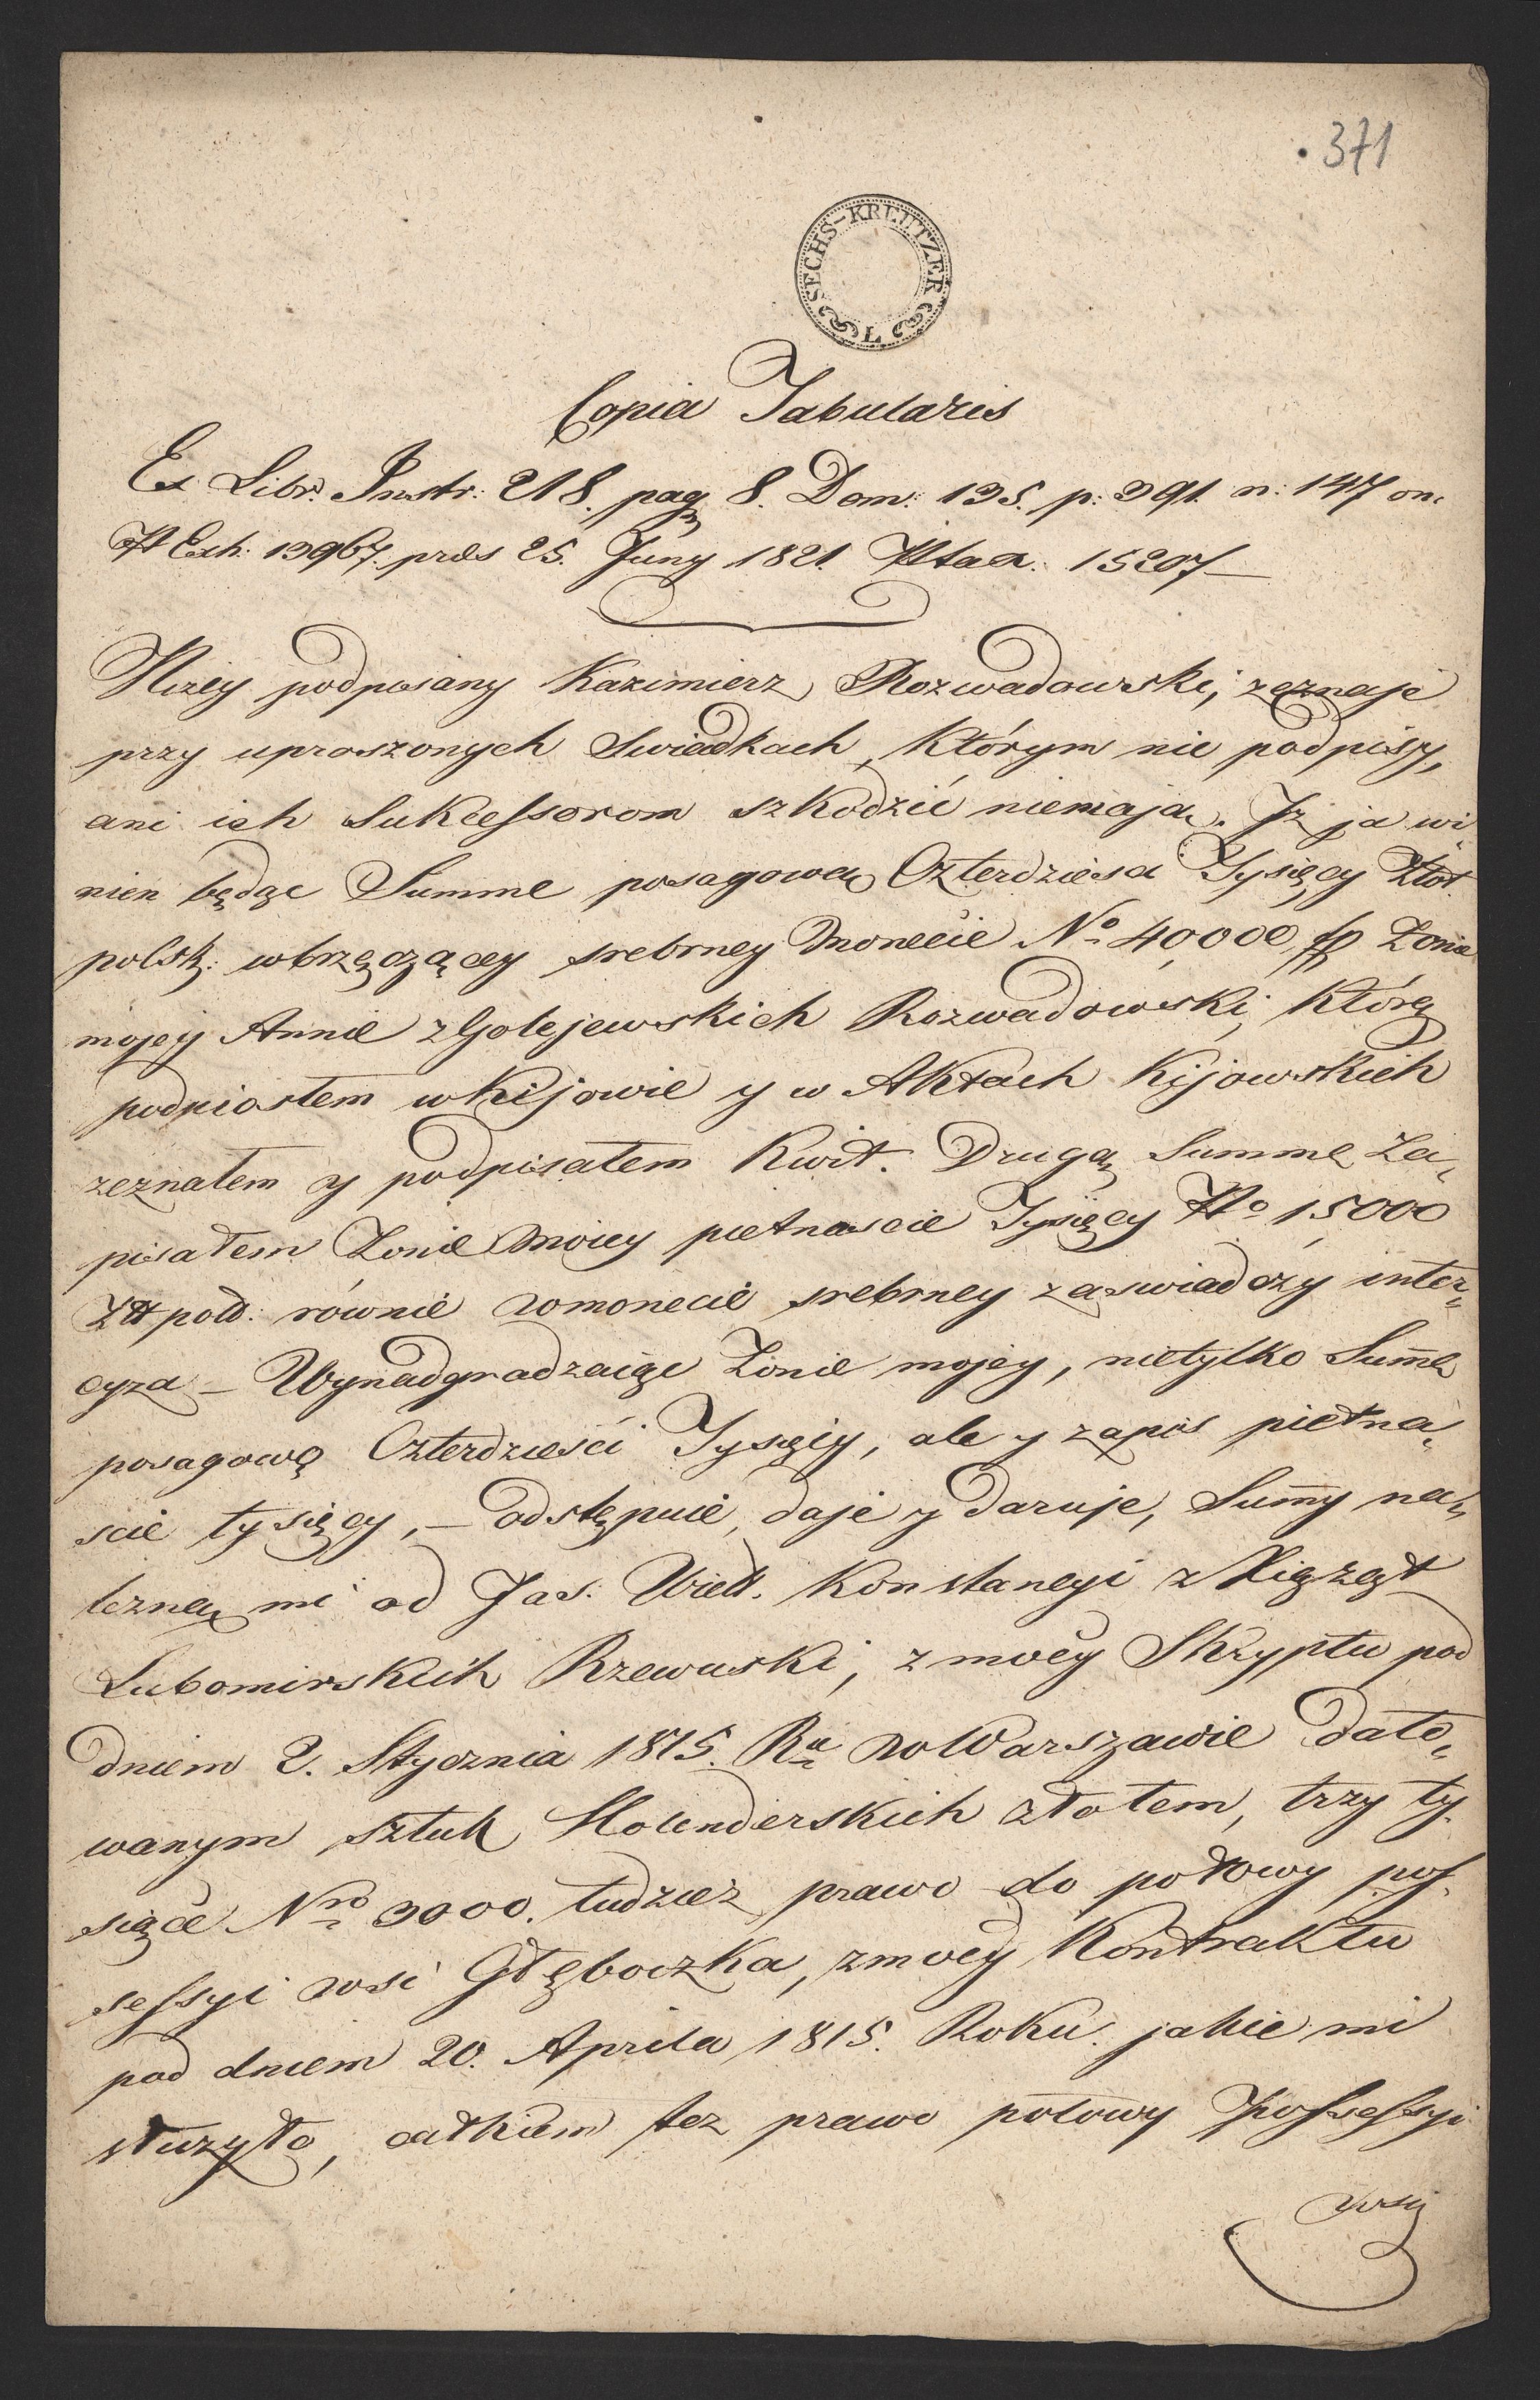 371
SECHS-KREUTZER L
Copia Tabularis
Ex Libr: Instr: 218. pag 8. Dom: 135. p: 391. n: 147 on.
N Exh: 13967. præs 25. Juny 1821. 15207
Niżey podpisany Kazimierz Rozwadowski, zeznaję
przy uproszonych Swiadkach, którym nie podpisy,
ani ich Sukcessorom szkodzić niemają. Iż ja wi,
nien będąc Summe posagową Czterdziesci Tysięcy Złot.
polsk: wbrzęczącey srebrney Monecie No 40,000 fp Żonie
mojey Annie zGolejewskich Rozwadowski, którą
podniosłem w Kijowie y w Aktach Kijowskich
zeznałem y podpisałem Kwit. Drugą Summę Za,
pisałem Żonie Moiey pietnascie Tysięcy No 15000
Zł pol: równie w monecie srebrney zaswiadczy inter,
cyza – Wynadgradzaiąc Żonie mojey, nietylko Sumę
posagową Czterdzieści Tysięcy, ale y zapis pietna,
scie tysięcy, – odstępuie, daje y daruje, Sumy na,
leżney mi od Jaś. Wiel. Konstancyi z Xiążąt
Lubomirskich Rzewuski, z mocy Skryptu pod
dniem 2. Stycznia 1815. Ru w Warszawie dato,
wanym sztuk Holenderskich złotem, trzy ty,
siące Nro 3000. tudzież prawo do połowy pos,
sessyi wsi Głęboczka, z mocy Kontraktu
pod dniem 20. Aprila 1815. Roku. jakie mi
służyło, całkiem też prawo połowy Possessyi
wsi